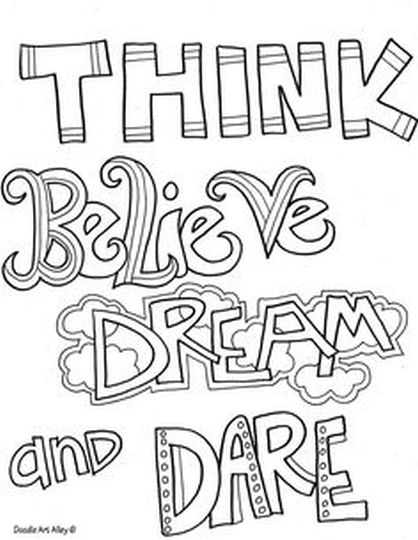 THINK
BeLieve
DREAM
and DARE
Doodle Art Alley ©